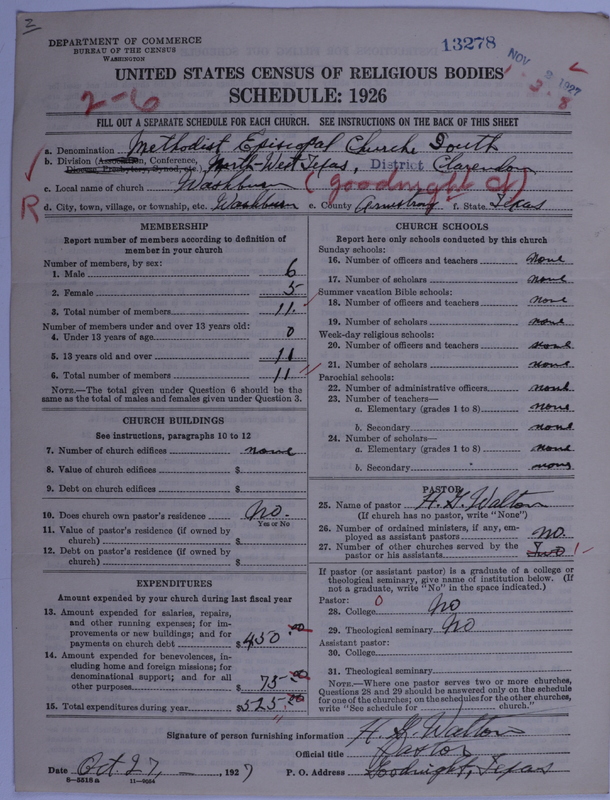 2
DEPARTMENT OF COMMERCE
BUREAU OF THE CENSUS
WASHINGTON
13278
NOV 2 1927
UNITED STATES CENSUS OF RELIGIOUS BODIES
1-3-8
SCHEDULE: 1926
2-6
FILL OUT A SEPARATE SCHEDULE FOR EACH CHURCH. SEE INSTRUCTIONS ON THE BACK OF THIS SHEET
a. Denomination Methodist Episcopal Church, South
b. Division (Association, Conference, Diocese, Presbytery, Synod, etc.) North-West Texas, District Clarendon
c. Local name of church Washburn (Goodnight Ct)
R
d. City, town, village, or township, etc. Washburn e. County Armstrong f. State Texas
MEMBERSHIP
Report number of members according to definition of
member in your church
Number of members, by sex:
1. Male 6
2. Female 5
3. Total number of members 11.
Number of members under and over 13 years old:
4. Under 13 years of age 0
5. 13 years old and over 11
6. Total number of members 11
NOTE.—The total given under Question 6 should be the
same as the total of males and females given under Question 3.
CHURCH BUILDINGS
See instructions, paragraphs 10 to 12
7. Number of church edifices none
8. Value of church edifices $
9. Debt on church edifices $
10. Does church own pastor's residence No.
Yes or No
11. Value of pastor's residence (if owned by
church) $
12. Debt on pastor's residence (if owned by
church) $
EXPENDITURES
Amount expended by your church during last fiscal year
13. Amount expended for salaries, repairs,
and other running expenses; for im-
provements or new buildings; and for
payments on church debt $450.00
14. Amount expended for benevolences, in-
cluding home and foreign missions; for
denominational support; and for all
other purposes $ 75.00
15. Total expenditures during year $525.00
CHURCH SCHOOLS
Report here only schools conducted by this church
Sunday schools:
16. Number of officers and teachers none
17. Number of scholars none
Summer vacation Bible schools:
18. Number of officers and teachers none
19. Number of scholars none
Week-day religious schools:
20. Number of officers and teachers none
21. Number of scholars none
Parochial schools:
22. Number of administrative officers none
23. Number of teachers—
a. Elementary (grades 1 to 8) none
b. Secondary none
24. Number of scholars—
a. Elementary (grades 1 to 8) none
b. Secondary none
PASTOR
25. Name of pastor H. G. Walton
(If church has no pastor, write "None")
26. Number of ordained ministers, if any, em-
ployed as assistant pastors No.
27. Number of other churches served by the
pastor or his assistants Two 1
If pastor (or assistant pastor) is a graduate of a college or
theological seminary, give name of institution below. (If
not a graduate, write "No" in the space indicated.)
Pastor: 0
28. College No
29. Theological seminary No
Assistant pastor:
30. College
31. Theological seminary
NOTE.—Where one pastor serves two or more churches,
Questions 28 and 29 should be answered only on the schedule
for one of the churches; on the schedules for the other churches,
write "See schedule for church."
Signature of person furnishing information H. G. Walton
Official title Pastor
Date Oct. 27, 1927 P. O. Address Goodnight, Texas
8-5518a 11-9054